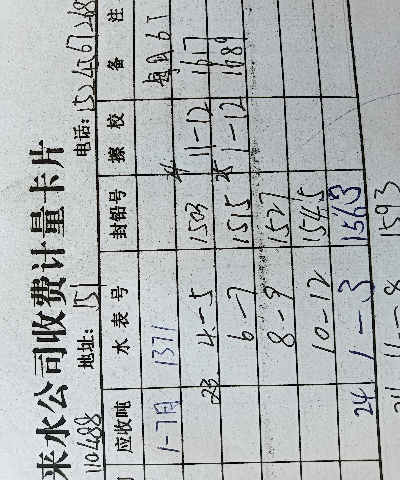 来水公司收费计量卡片
110488 地址: 151 电话:
应收吨 水表号 封铅号 擦校 备注
1-7月 1371 每月6T
23 4-5 1503 24 11-12 1617
6-7 1515 25 1-12 1689
8-9 1527
10-12 1545
24 1-3 1563
1593